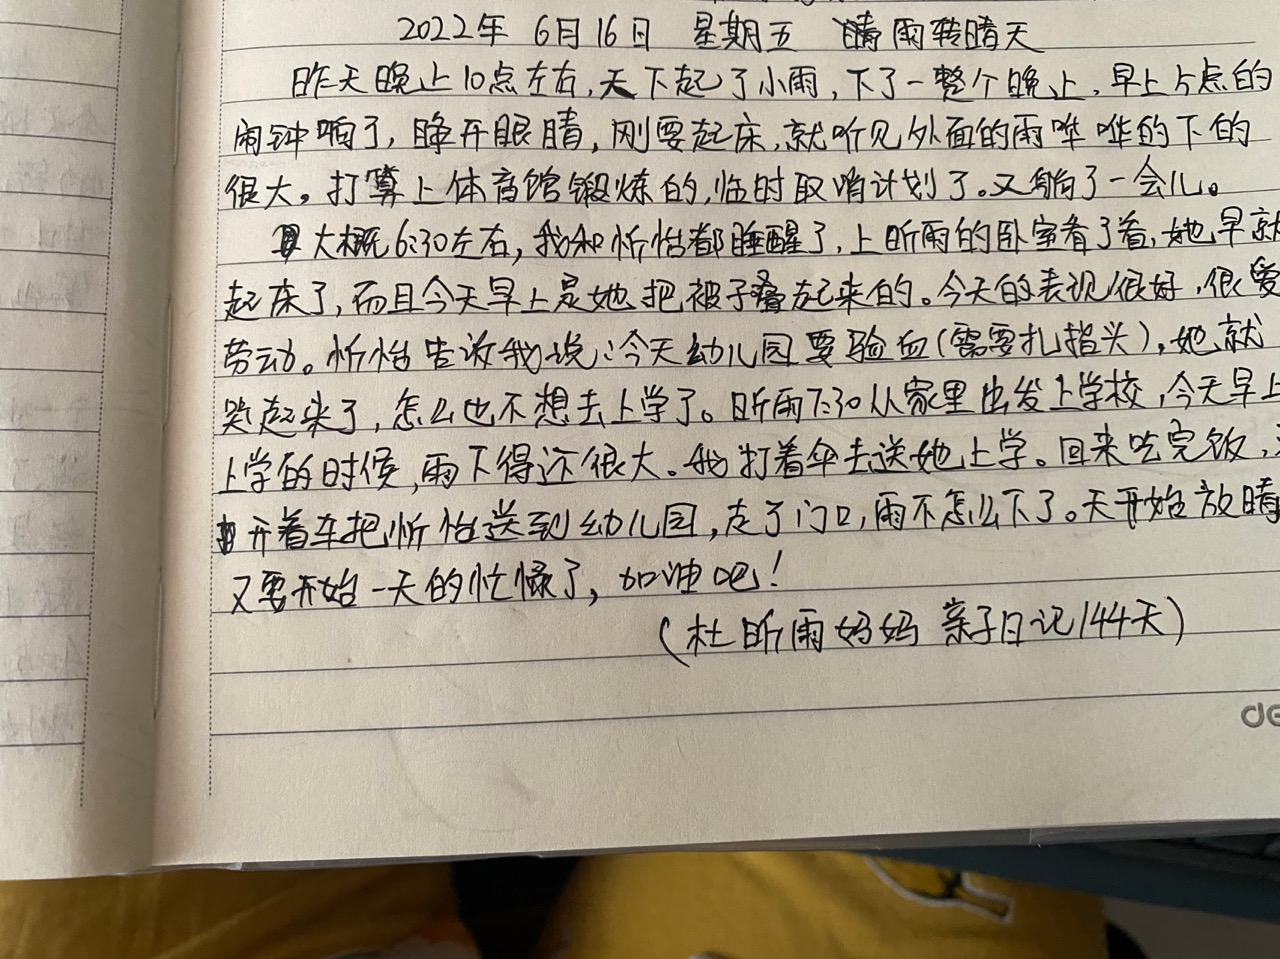 2022年 6月16日 星期五 雨转晴天
昨天晚上10点左右,天下起了小雨,下了一整个晚上,早上5点的
闹钟响了,睁开眼睛,刚要起床,就听见外面的雨哗哗的下的
很大。打算上体育馆锻炼的,临时取消计划了。又躺了一会儿。
大概6:30左右,我和忻怡都睡醒了,上昕雨的卧室看了看,她早就
起床了,而且今天早上是她把被子叠起来的。今天的表现很好,很爱
劳动。忻怡告诉我说:今天幼儿园要验血(需要扎指头),她就
哭起来了,怎么也不想去上学了。昕雨7:30从家里出发上学校,今天早上
上学的时候,雨下得还很大。我打着伞去送她上学。回来吃完饭,
开着车把忻怡送到幼儿园,走了门口,雨不怎么下了。天开始放晴
又要开始一天的忙碌了,加油吧!
(杜昕雨妈妈 亲子日记144天)
de